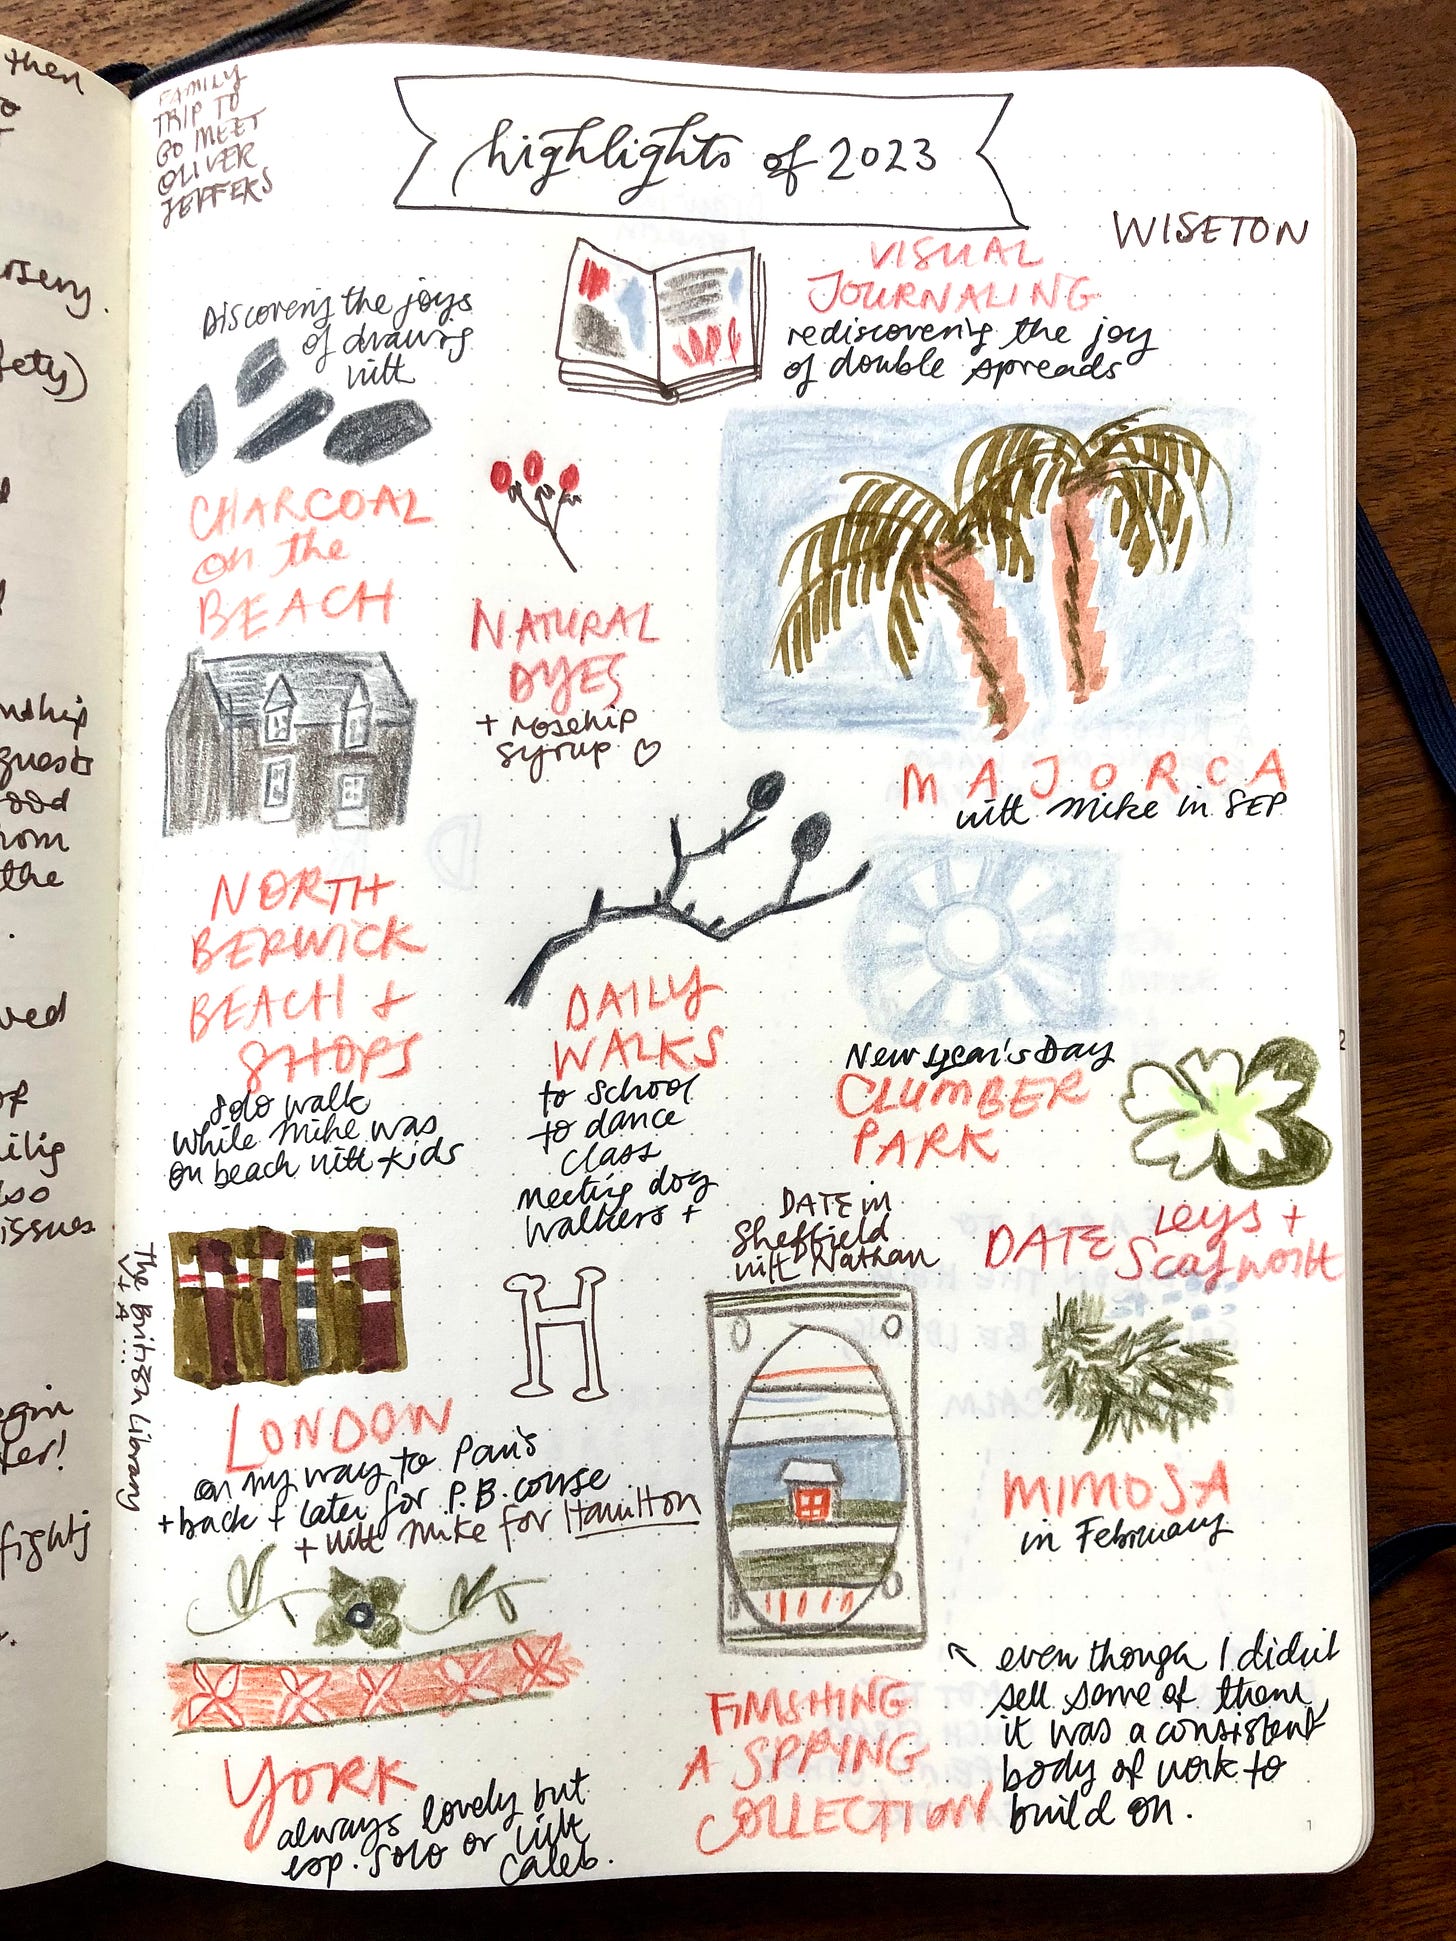 FAMILY
TRIP TO
GO MEET
OLIVER
JEFFERS
highlights of 2023
WISETON
Discovering the joys
of drawing
with
CHARCOAL
on the
BEACH
VISUAL
JOURNALING
rediscovering the joy
of double spreads
NATURAL
DYES
+ rosehip
syrup ♡
MAJORCA
with Mike in SEP
NORTH
BERWICK
BEACH +
SHOPS
solo walk
while Mike was
on beach with kids
DAILY
WALKS
to school
to dance
class
meeting dog
walkers +
New Year's Day
CLUMBER
PARK
DATE in
Sheffield
with Nathan
DATE Leys +
Scafworth
The British Library
V + A ...
LONDON
on my way to Paris
+ back + later for P.B. course
+ with Mike for Hamilton
H
MIMOSA
in February
YORK
always lovely but
esp. solo or with
Caleb.
FINISHING
A SPRING
COLLECTION
even though I didn't
sell some of them,
it was a consistent
body of work to
build on.
1
then
to
nursery.
fety)
nship
guests
ood
from
the
.
ved
of
also
issues
fighting
2